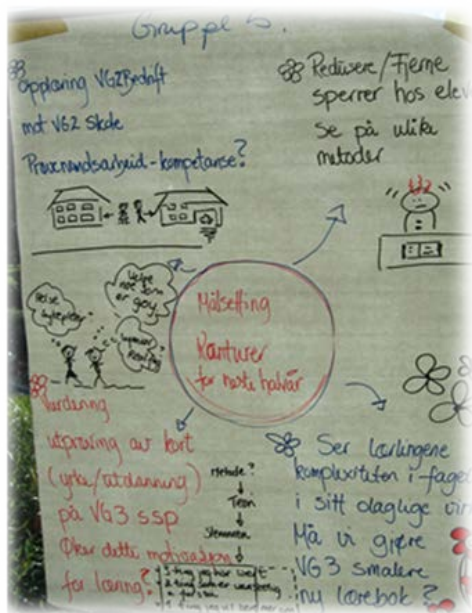 Gruppe 5.
Opplæring VG2 Bedrift
mot VG2 Skole
Prøvenemdsarbeid - kompetanse?
Redusere/Fjerne
sperrer hos elev
Se på ulike
metoder
Målsetting
Konturer
for neste halvår
Velge
noe som
er gøy
Helse
sykepleier
Vurdering
utprøving av kort
(yrke/utdanning)
på VG3 ssp
Øker dette motivasjon
for læring?
Metode?
Teori
Stemmer
Ser lærlingene
kompleksiteten i faget
i sitt daglige vir
Må vi gjøre
VG3 smalere
ny lærebok?